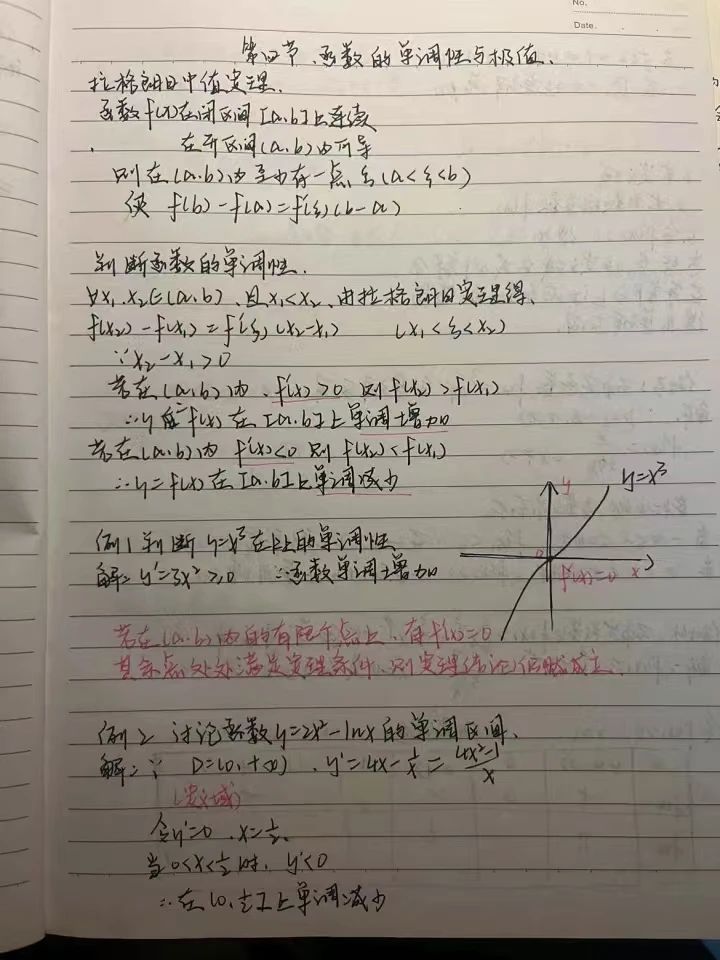 No.
Date.
第四节、函数的单调性与极值.
拉格朗日中值定理.
函数f(x)在闭区间[a.b]上连续
在开区间(a.b)内可导
则在(a.b)内至少有一点ξ(a<ξ<b)
使 f(b)-f(a)=f'(ξ)(b-a)
判断函数的单调性.
∀x₁.x₂∈(a.b)、且x₁<x₂、由拉格朗日定理得、
f(x₂)-f(x₁)=f'(ξ)(x₂-x₁) (x₁<ξ<x₂)
∵x₂-x₁>0
若在(a.b)内、f'(x)>0 则f(x₂)>f(x₁)
∴y=f(x)在[a.b]上单调增加
若在(a.b)内 f'(x)<0 则f(x₂)<f(x₁)
∴y=f(x)在[a.b]上单调减少
y
y=x³
0
f'(x)=0
x
例1 判断y=x³在R上的单调性
解:y'=3x²≥0 ∴函数单调增加
若在(a.b)内的有限个点上,有f'(x)=0
其余点处处满足定理条件、则定理结论仍然成立、
例2 讨论函数y=2x²-lnx的单调区间、
解:∵ D=(0.+∞)、y'=4x-1/x=4x²-1/x
(定义域)
令y'=0、x=1/2.
当0<x<1/2时、y'<0
∴在(0.1/2]上单调减少